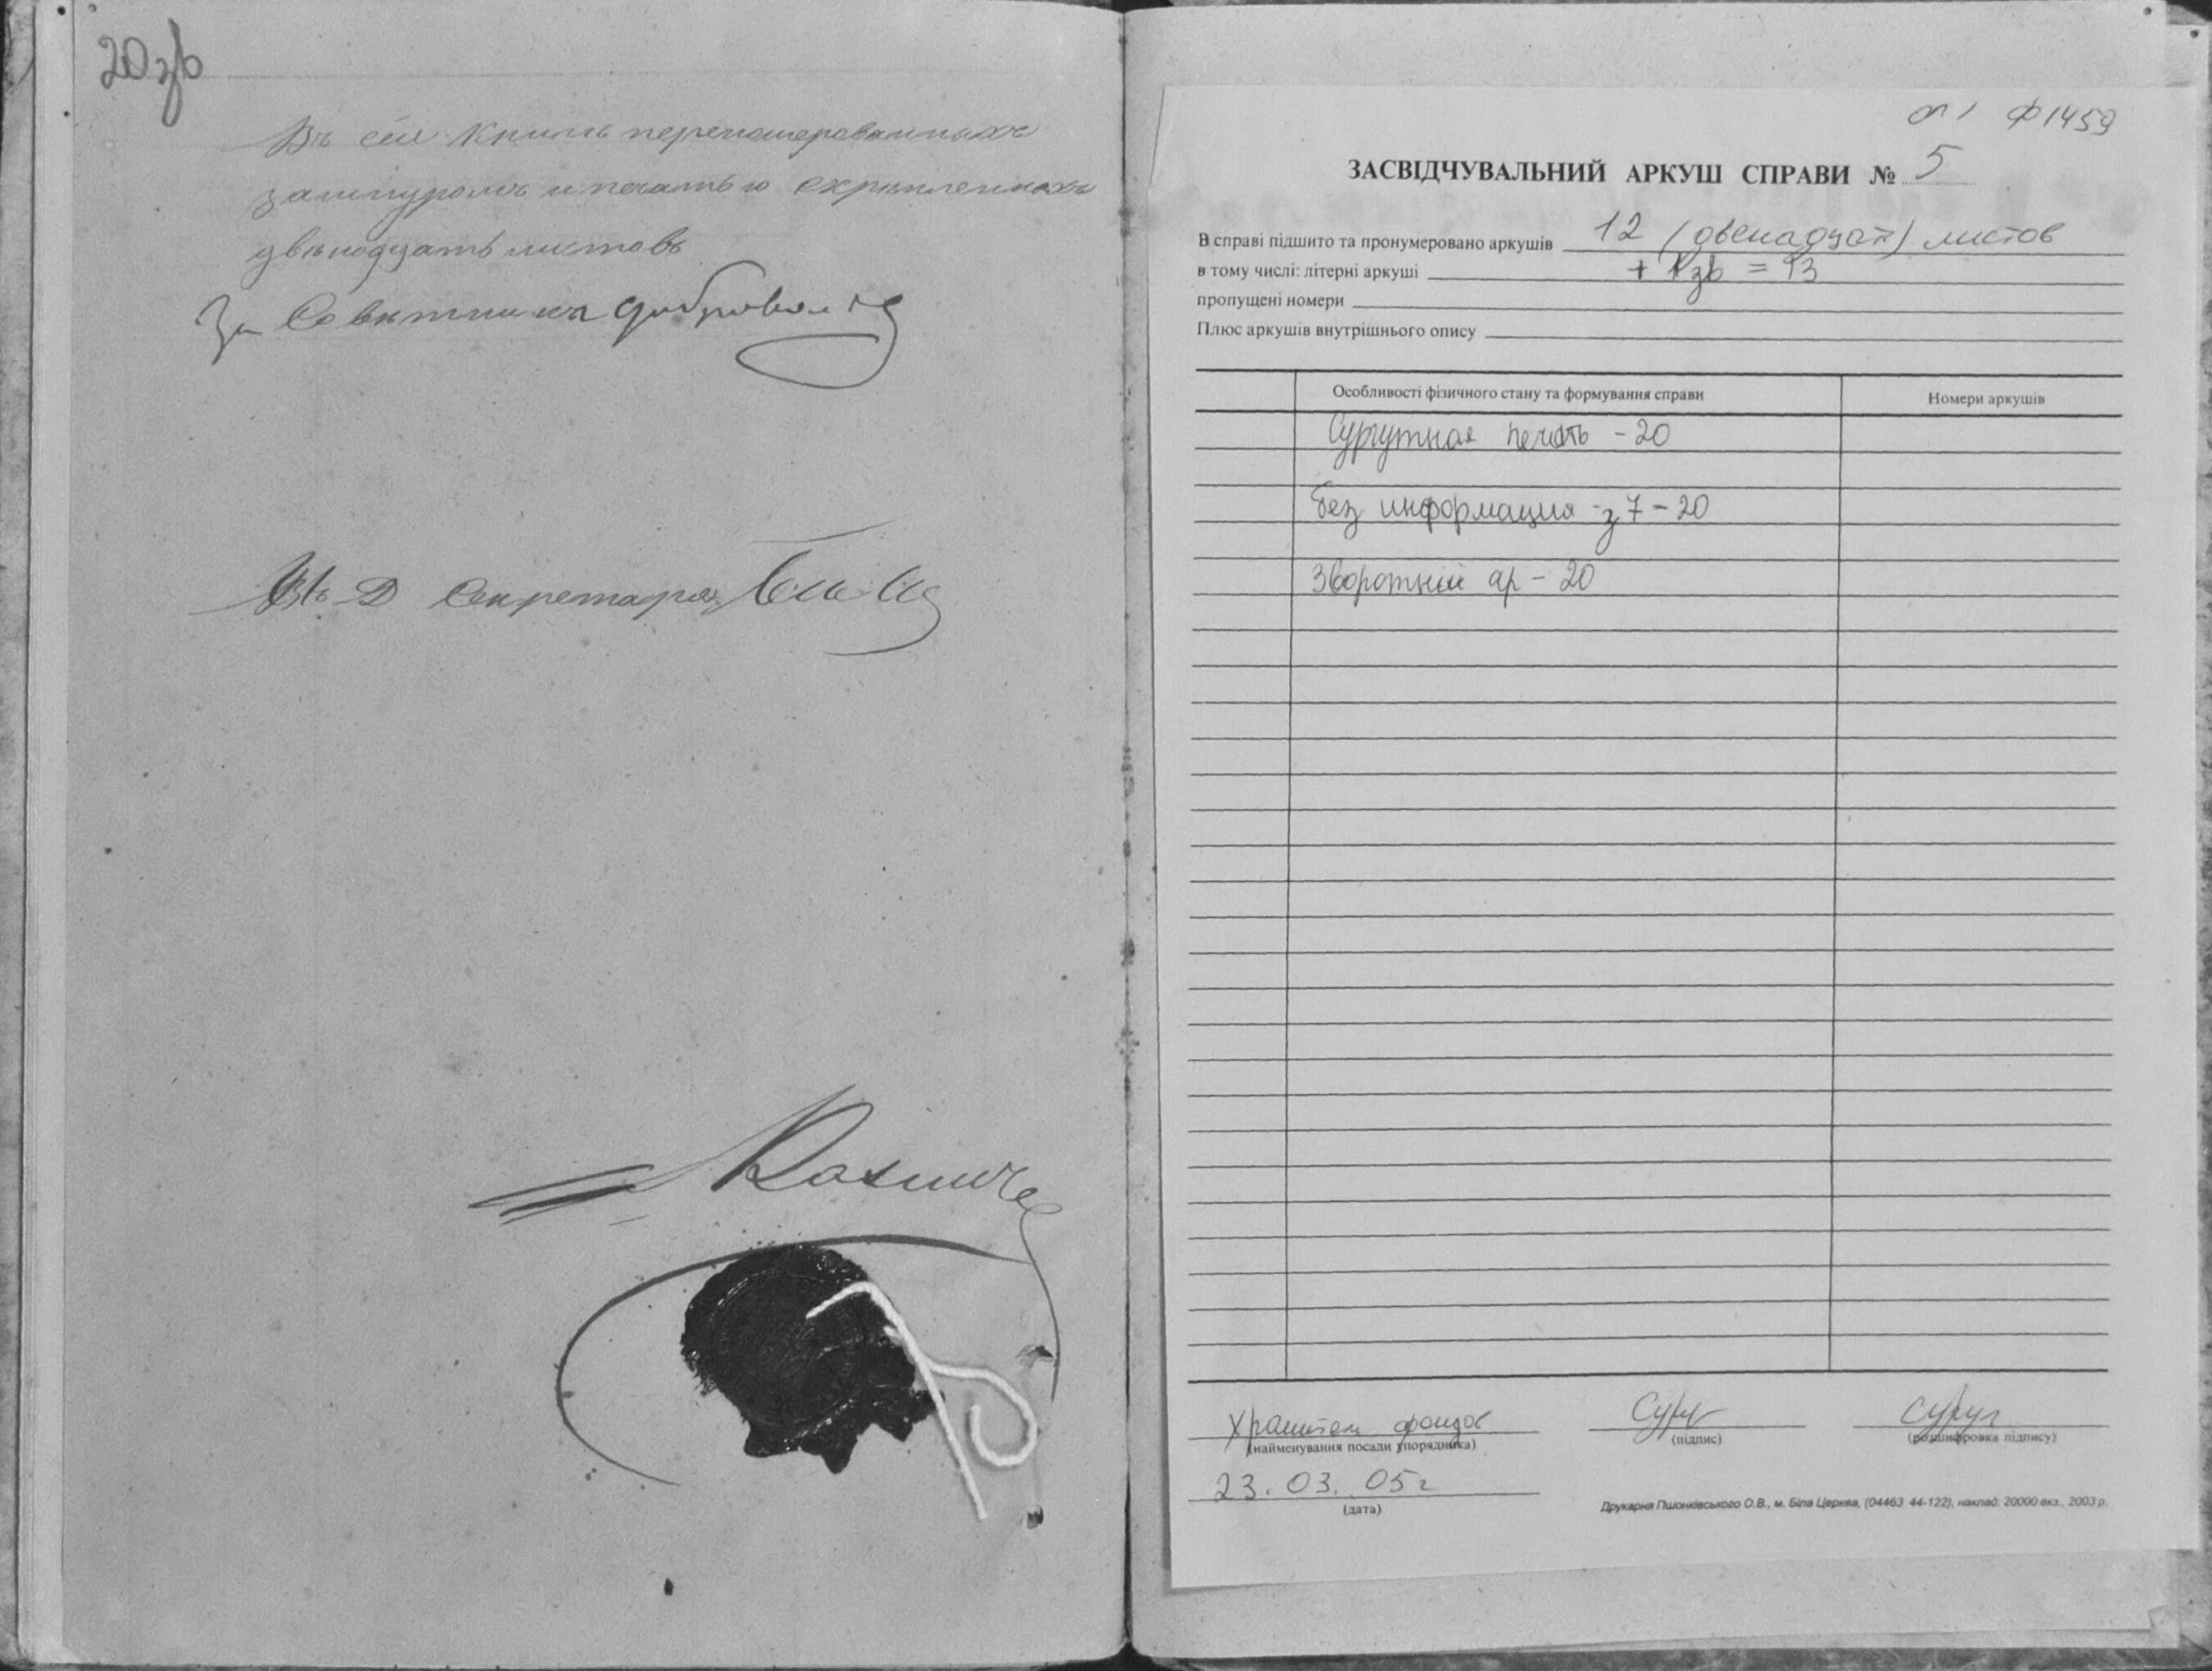 20 зв
Въ сей Книгѣ перенумерованныхъ
зашнуромъ и печатью скрѣпленныхъ
двѣнадцать листовъ
За Совѣтника
И Д Секретаря
оп 1 Ф 1459
ЗАСВІДЧУВАЛЬНИЙ АРКУШ СПРАВИ № 5
В справі підшито та пронумеровано аркушів 12 (двенадцат) листов
в тому числі: літерні аркуші + 1 зв = 13
пропущені номери
Плюс аркушів внутрішнього опису
Особливості фізичного стану та формування справи Номери аркушів
Сургутная печать - 20
Без информация - з 7 - 20
Зворотний ар - 20
Хранител фондов
(найменування посади упорядника) (підпис) (розшифровка підпису)
23. 03. 05 г
(дата)
Друкарня Пшонківського О.В., м. Біла Церква, (04463 44-122), наклад: 20000 екз., 2003 р.